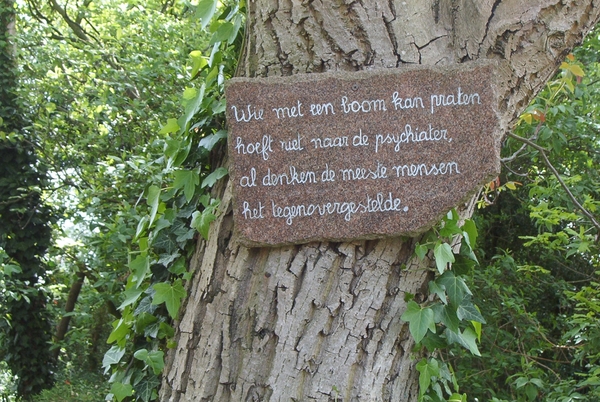 Wie met een boom kan praten
hoeft niet naar de psychiater,
al denken de meeste mensen
het tegenovergestelde.